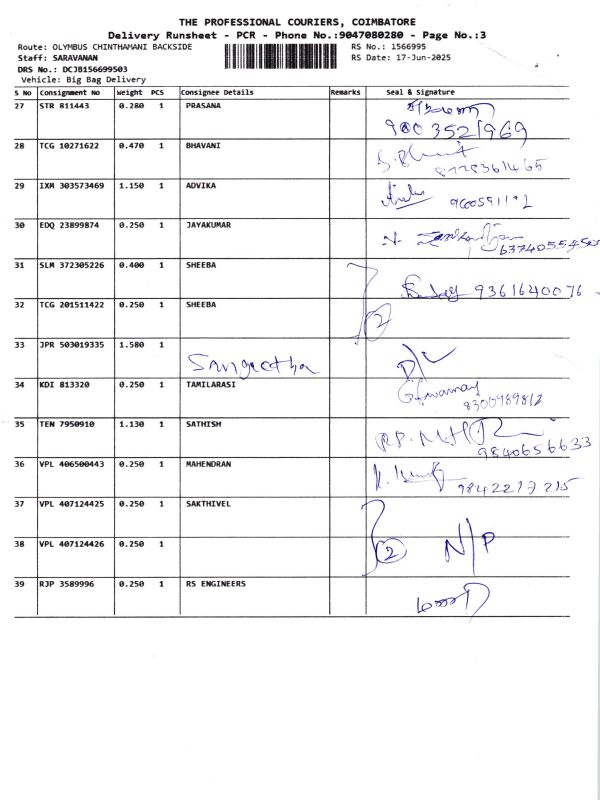 THE PROFESSIONAL COURIERS, COIMBATORE
Delivery Runsheet - PCR - Phone No.:9047080280 - Page No.:3
Route: OLYMBUS CHINTHAMANI BACKSIDE RS No.: 1566995
Staff: SARAVANAN RS Date: 17-Jun-2025
DRS No.: DCJB156699503
Vehicle: Big Bag Delivery
S No Consignment No Weight PCS Consignee Details Remarks Seal & Signature
27 STR 811443 0.280 1 PRASANA
9003521969
28 TCG 10271622 0.470 1 BHAVANI
29 IXM 303573469 1.150 1 ADVIKA
30 EDQ 23899874 0.250 1 JAYAKUMAR
31 SLM 372305226 0.400 1 SHEEBA 9361640076
32 TCG 201511422 0.250 1 SHEEBA 2
33 JPR 503019335 1.580 1 Sangeetha D/L
34 KDI 813320 0.250 1 TAMILARASI
8300989812
35 TEN 7950910 1.130 1 SATHISH
9840656633
36 VPL 406500443 0.250 1 MAHENDRAN
9842217215
37 VPL 407124425 0.250 1 SAKTHIVEL
38 VPL 407124426 0.250 1 2 N/P
39 RJP 3589996 0.250 1 RS ENGINEERS